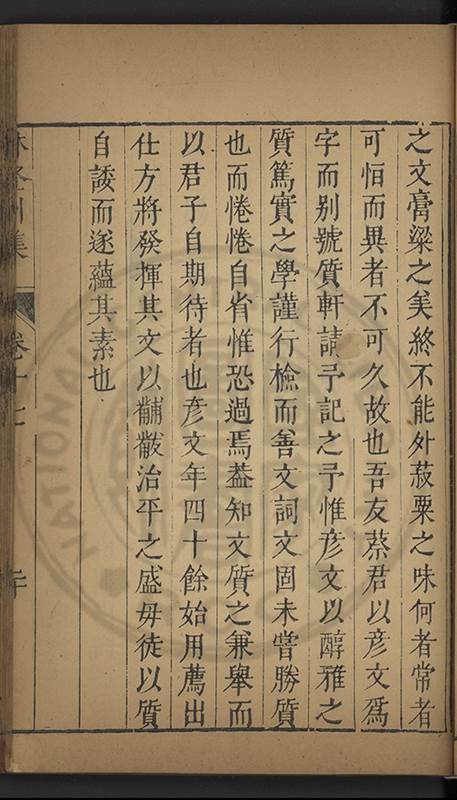 之文膏粱之美終不能外菽粟之味何者常者
可怕而異者不可久故也吾友蔡君以彦文爲
字而别號質軒請予記之予惟彦文以醇雅之
質篤實之學謹行檢而善文詞文固未嘗勝質
也而惓惓自省惟恐過焉葢知文質之兼舉而
以君子自期待者也彦文年四十餘始用薦出
仕方將發揮其文以黼黻治平之盛毋徒以質
自諉而遂蘊其素也
集 卷十七